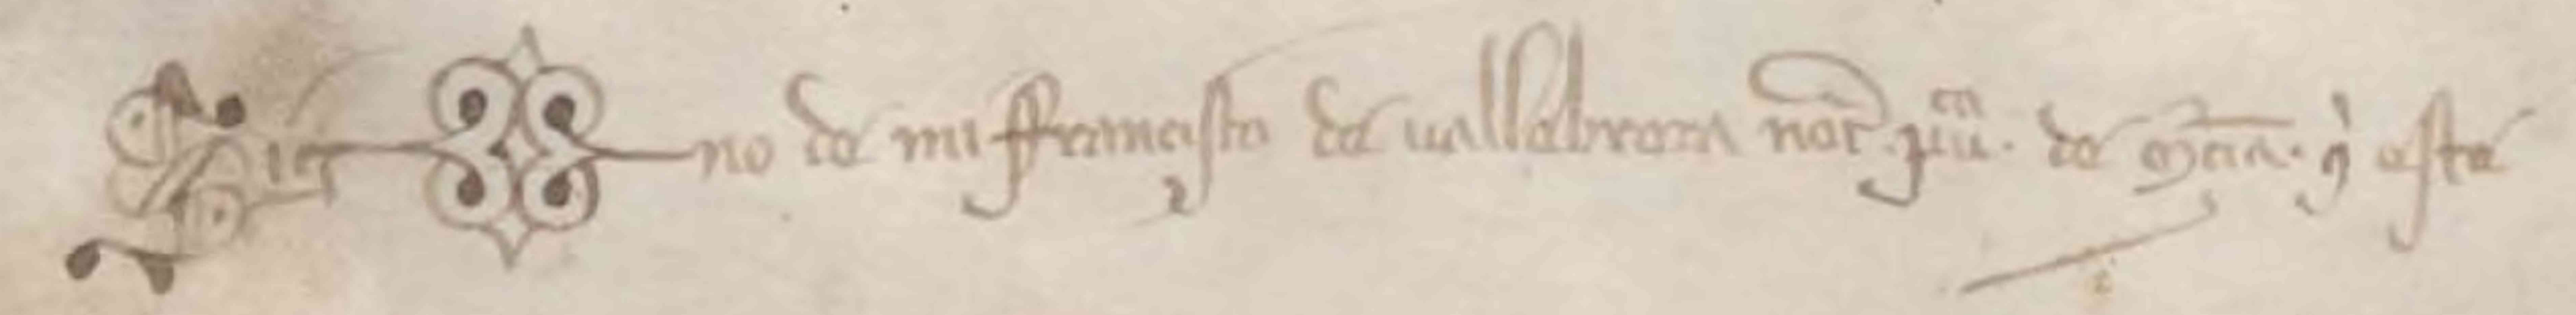 Sig no de mi ffrancisco de vallebrera not pu. de mcia. q este